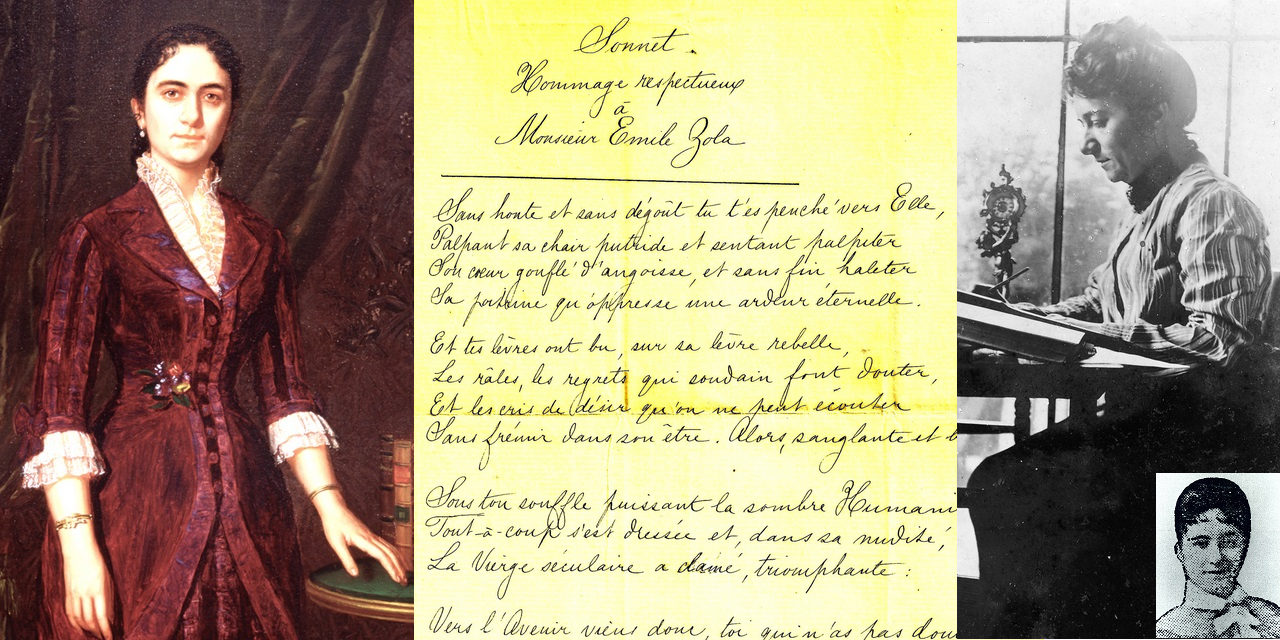 Sonnet.
Hommage respectueux
à
Monsieur Emile Zola
Sans honte et sans dégoût tu t'es penché vers Elle,
Palpant sa chair putride et sentant palpiter
Son cœur gonflé d'angoisse, et sans fin haleter
Sa poitrine qu'oppresse une ardeur éternelle.
Et tes lèvres ont bu, sur sa lèvre rebelle,
Les râles, les regrets qui soudain font douter,
Et les cris de désir qu'on ne peut écouter
Sans frémir dans son être. Alors, sanglante et b
Sous ton souffle puissant la sombre Humani
Tout-à-coup s'est dressée et, dans sa nudité,
La Vierge séculaire a clamé, triomphante :
Vers l'Avenir viens donc, toi qui n'as pas dou